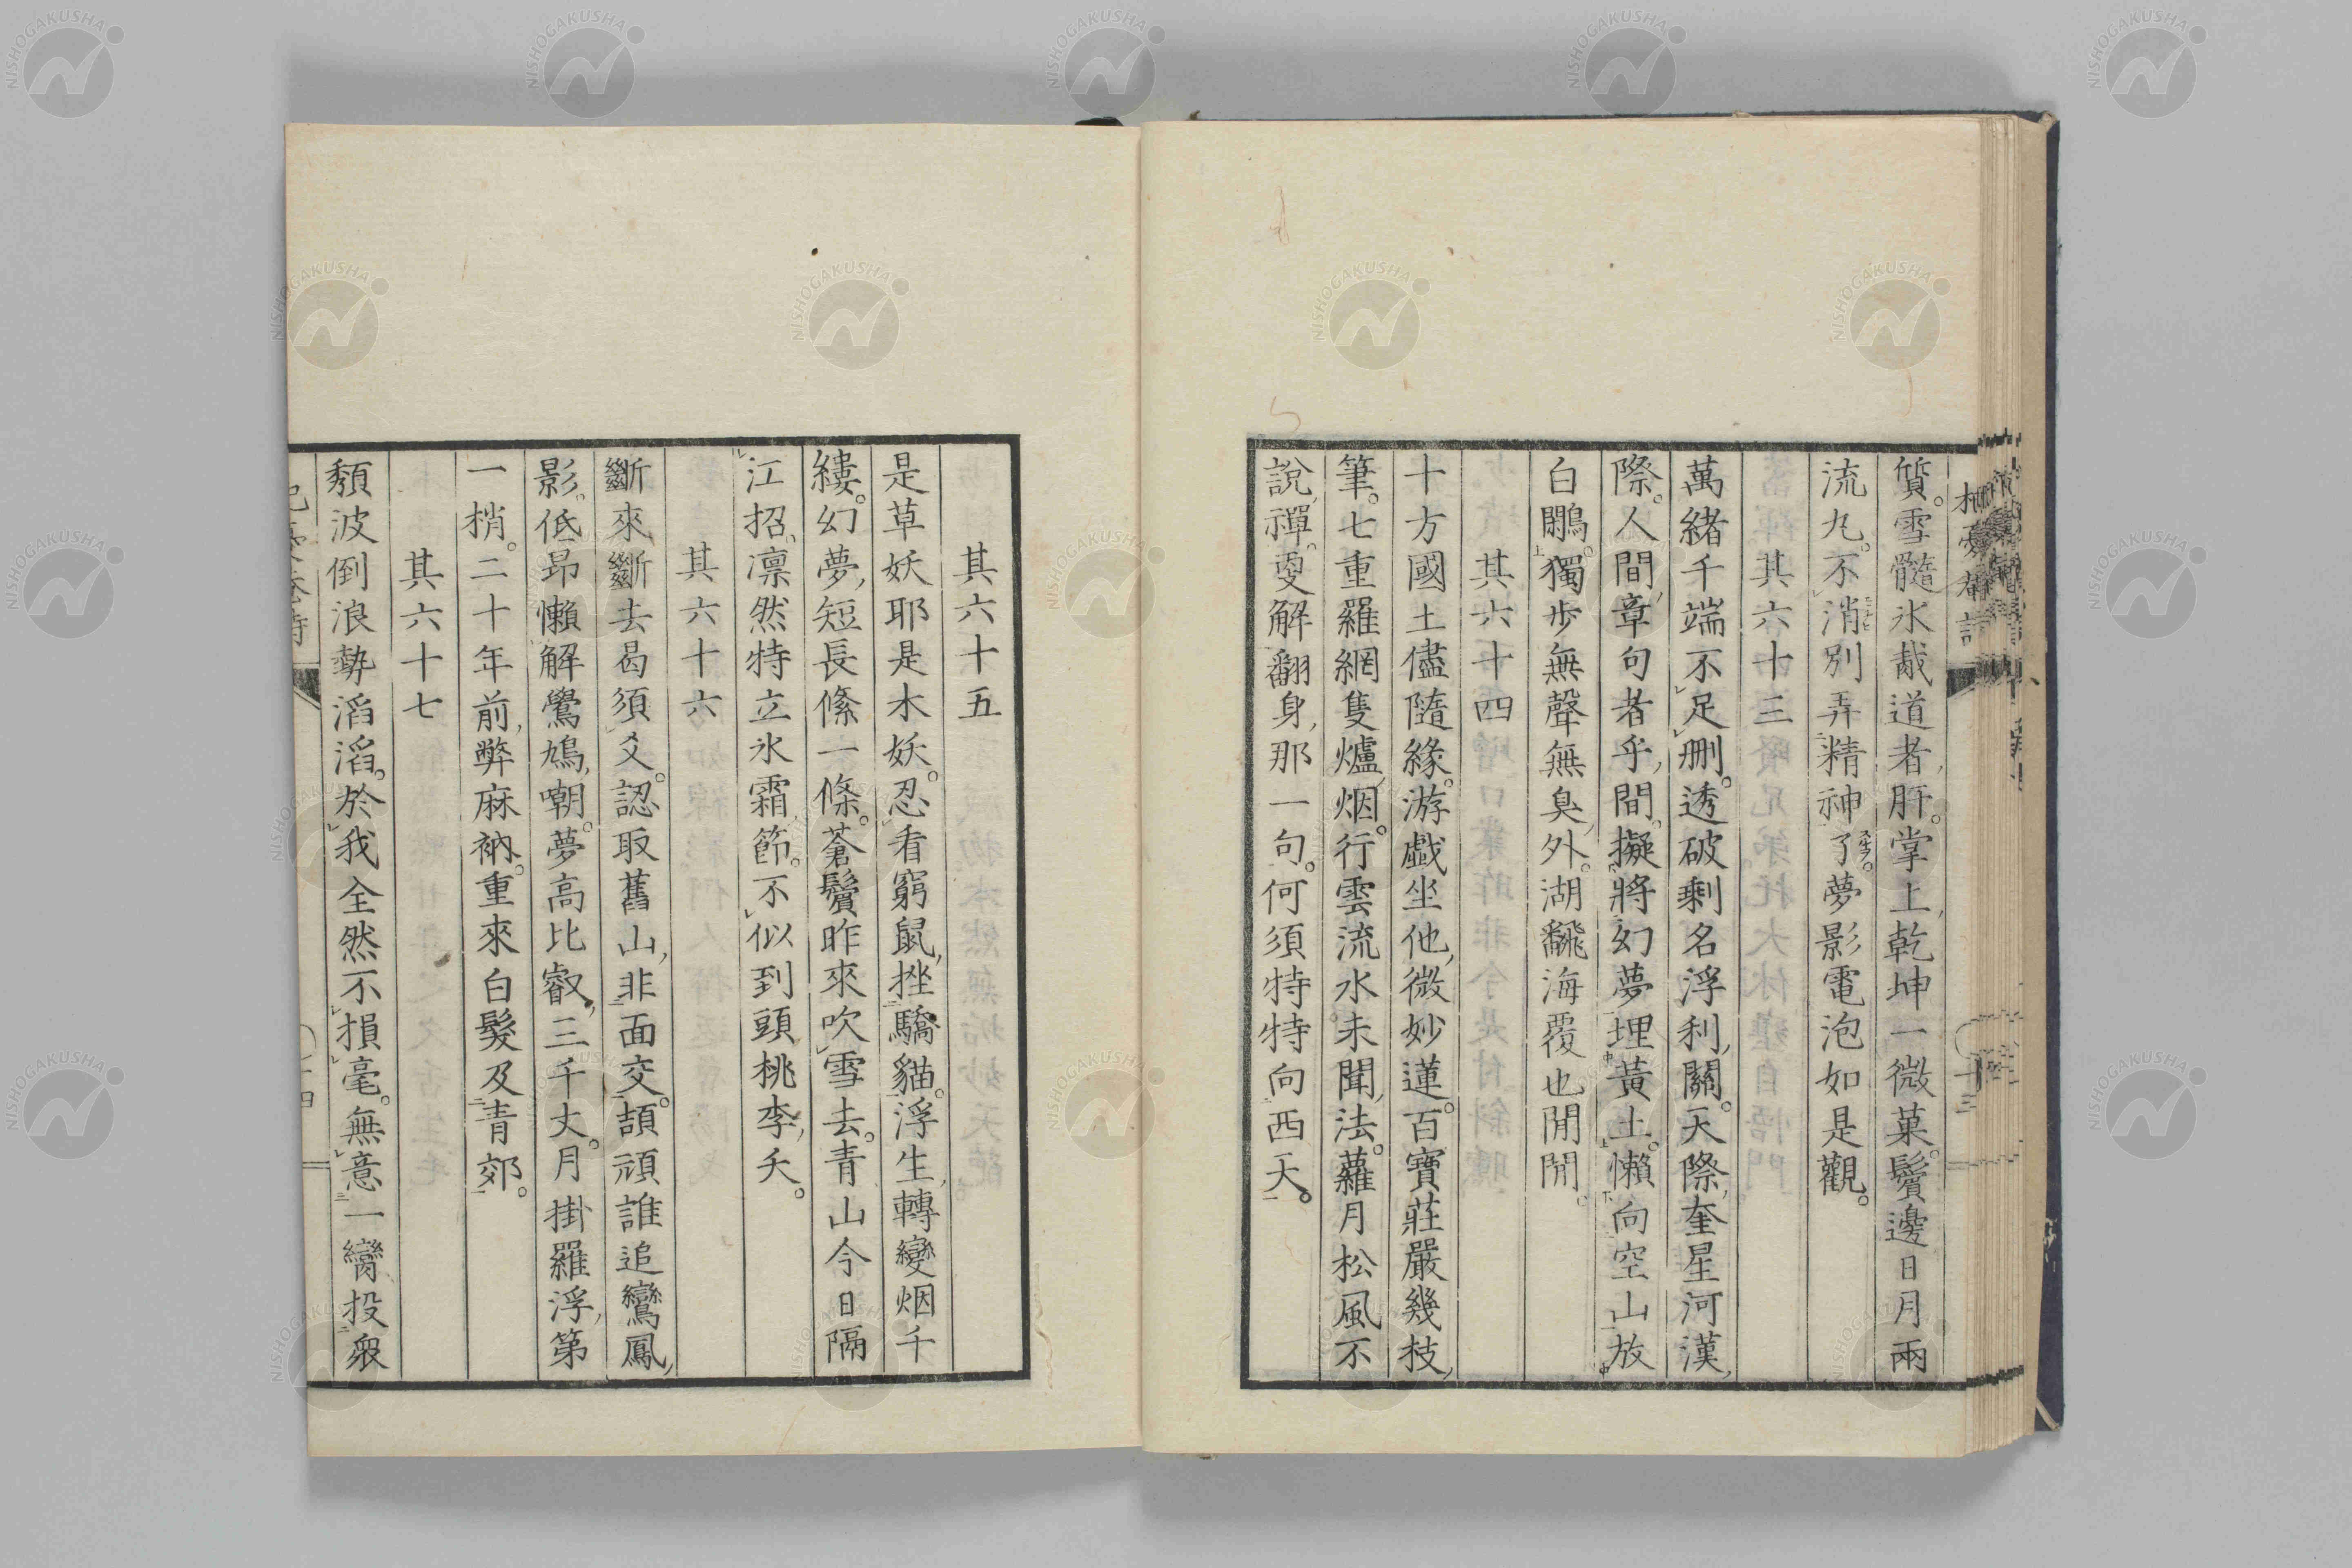 質。雪髓氷裁道者肝。掌上乾坤一微菓。鬢邊日月兩
流丸。不消別弄精神了。夢影電泡如是觀。
其六十三
萬緒千端不足刪。透破剩名浮利關。天際奎星河漢
際。人間章句者乎間。擬將幻夢埋黃土。懶向空山放
白鷴。獨步無聲無臭外。湖飜海覆也閒閒。
其六十四
十方國土儘隨緣。游戲坐他微妙蓮。百寶莊嚴幾枝
筆。七重羅網隻爐烟。行雲流水未聞法。蘿月松風不
說禪。更解翻身那一句。何須特特向西天。
其六十五
是草妖耶是木妖。忍看窮鼠挫驕貓。浮生轉變烟千
縷。幻夢短長絛一條。蒼鬢昨來吹雪去。青山今日隔
江招。凛然特立氷霜節。不似到頭桃李夭。
其六十六
斷來斷去曷須爻。認取舊山非面交。頡頏誰追鸞鳳
影。低昂懶解鷽鳩嘲。夢高比叡三千丈。月掛羅浮第
一梢。二十年前弊麻衲。重來白髮及青郊。
其六十七
頹波倒浪勢滔滔。於我全然不損毫。無意一臠投衆